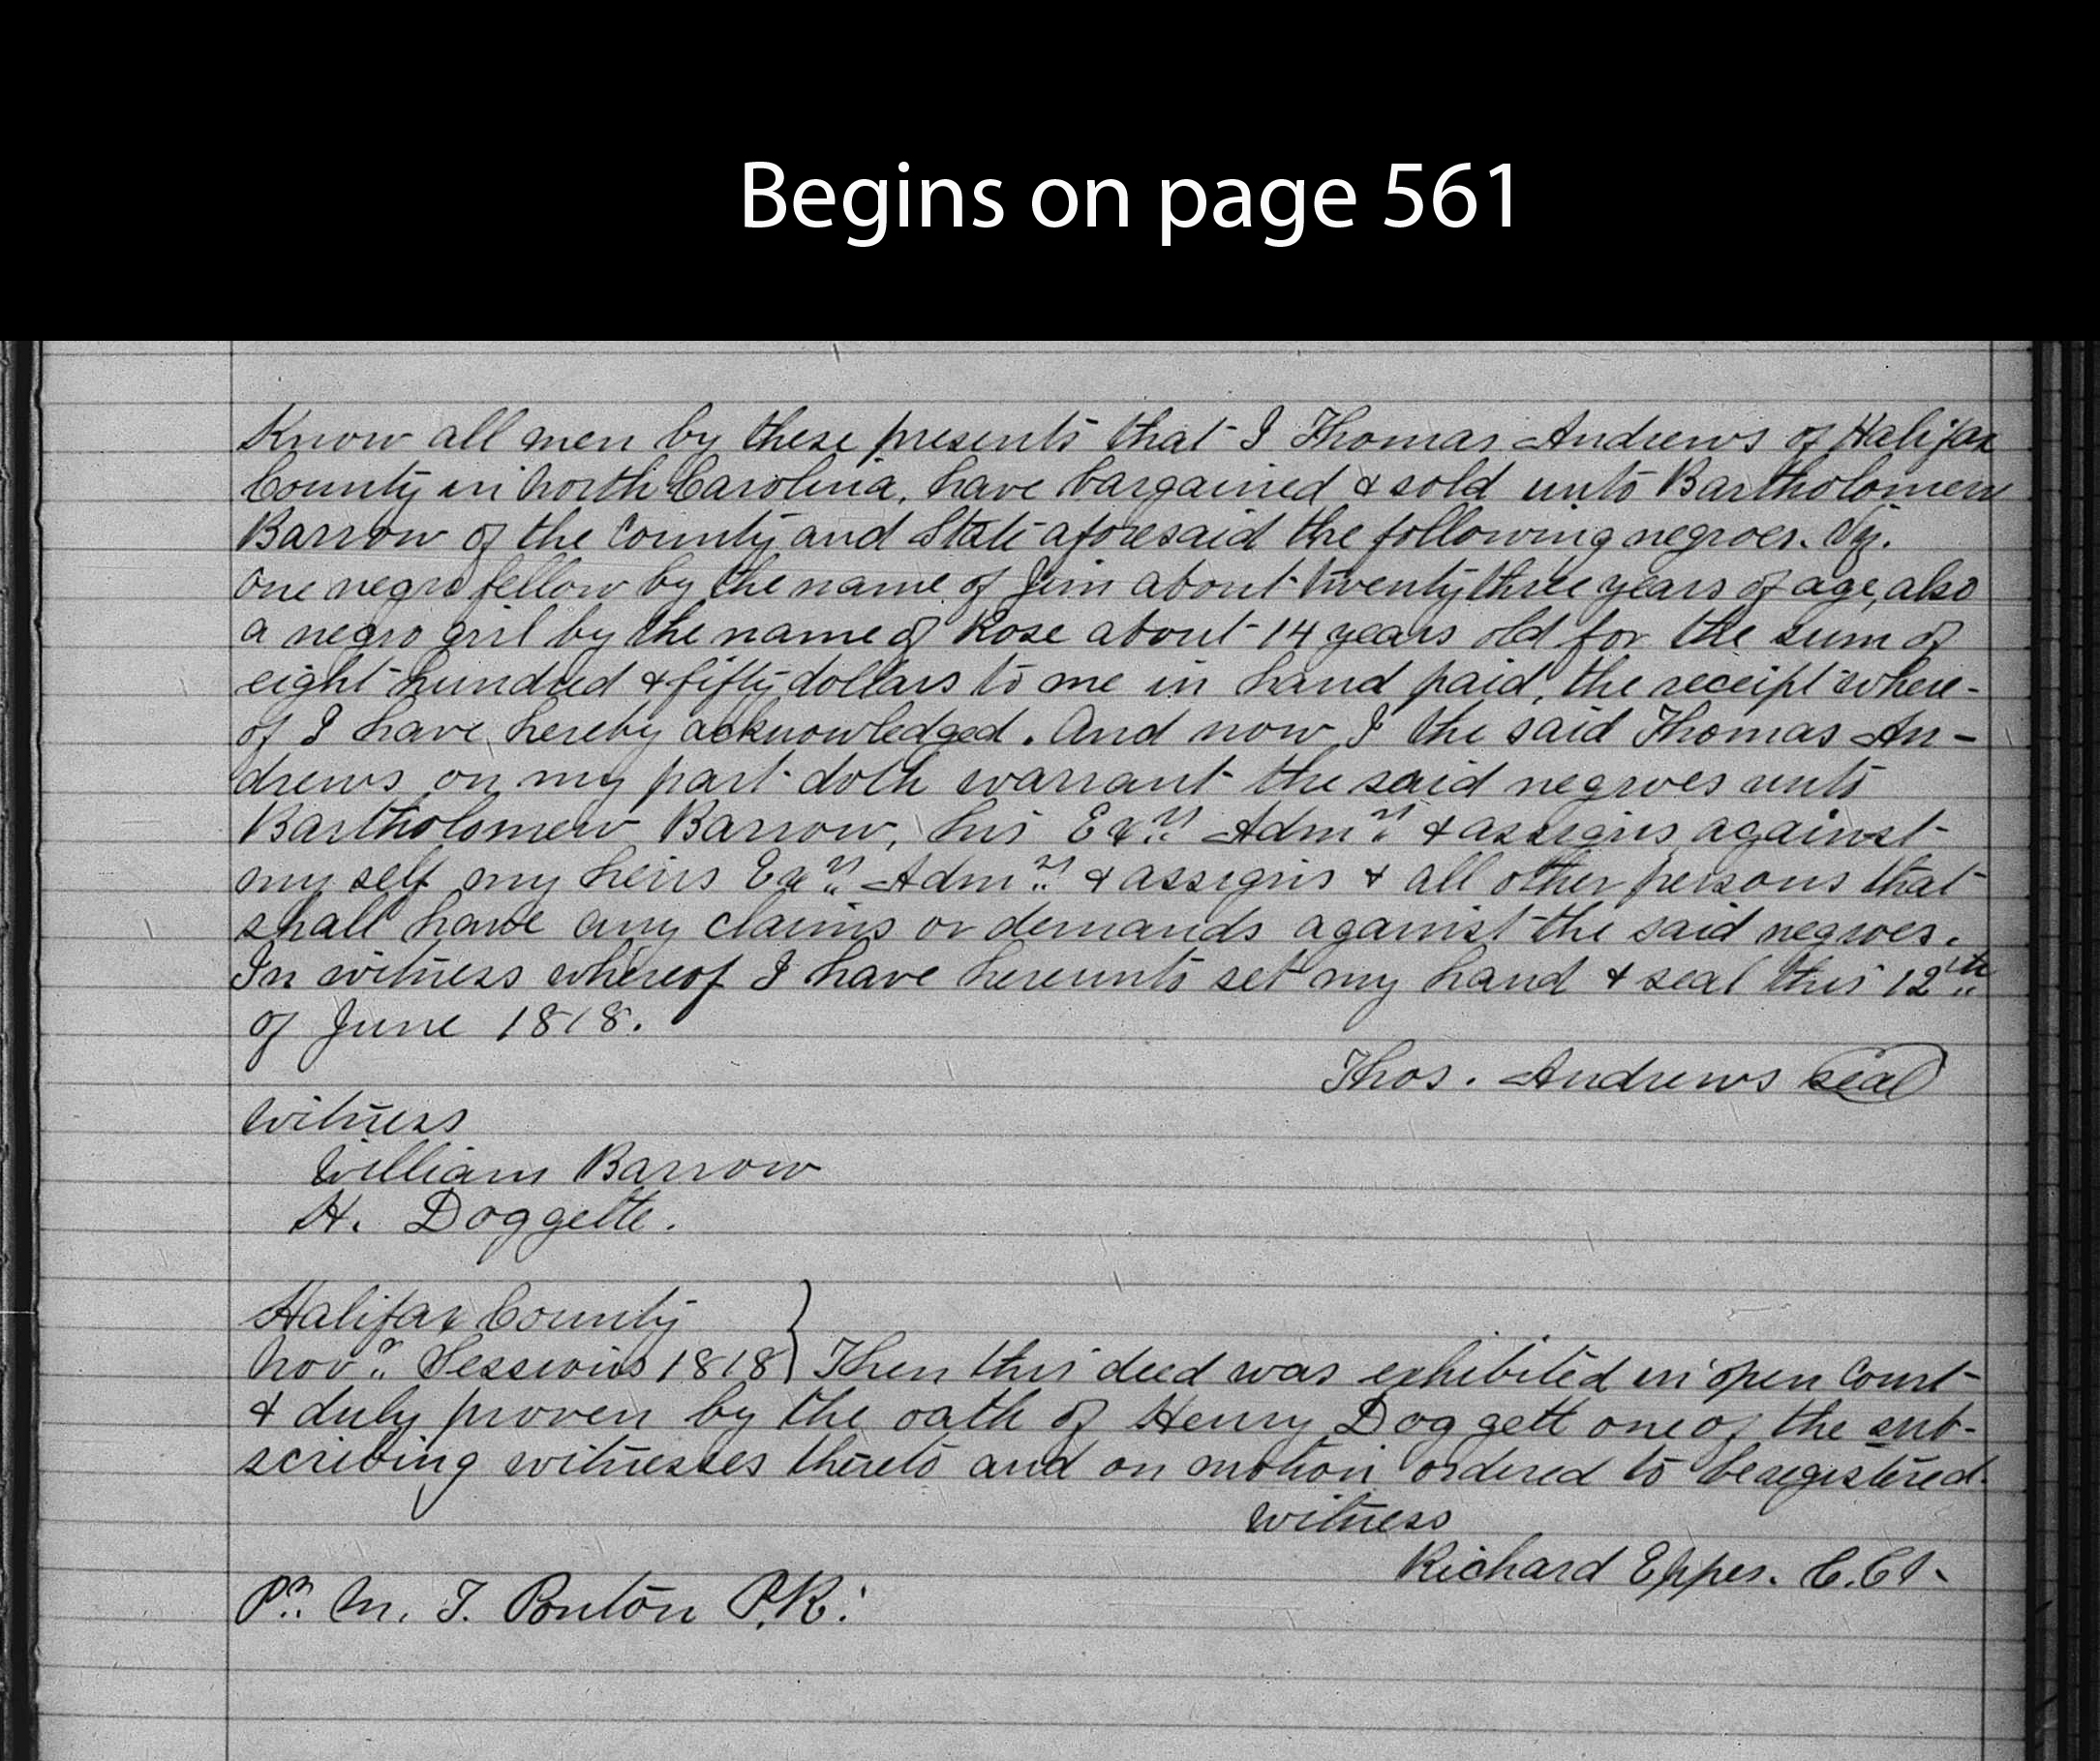 Begins on page 561
Know all men by these presents that I Thomas Andrews of Halifax
County in North Carolina, have bargained & sold unto Bartholomew
Barrow of the County and State aforesaid the following negroes. Viz.
one negro fellow by the name of Jim about twenty three years of age, also
a negro girl by the name of Rose about 14 years old for the sum of
eight hundred & fifty dollars to me in hand paid, the receipt where-
of I have hereby acknowledged. And now I the said Thomas An-
drews on my part doth warrant the said negroes unto
Bartholomew Barrow, his Exrs Admrs & assigns against
my self my heirs Exrs Admrs & assigns & all other persons that
shall have any claims or demands against the said negroes.
In witness whereof I have hereunto set my hand & seal this 12th
of June 1818.
Thos. Andrews seal
Witness
William Barrow
H. Doggette.
Halifax County
Novr. Sessions 1818 } Then this deed was exhibited in open Court
& duly proven by the oath of Henry Doggett one of the sub-
scribing witnesses thereto and on motion ordered to be registered.
Witness
Richard Eppes. C.Ct.
Pr. M. T. Ponton P.R.